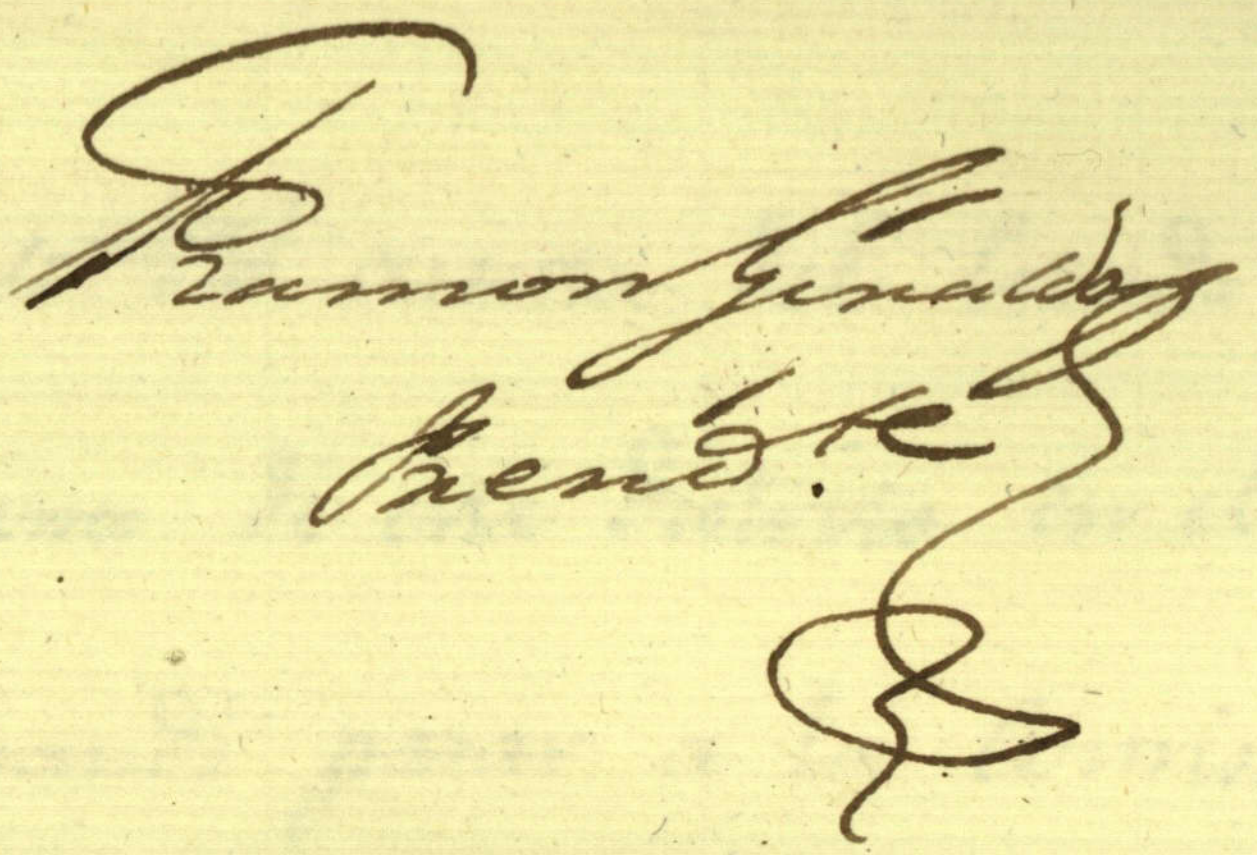 Ramon Giraldo
Presidte.